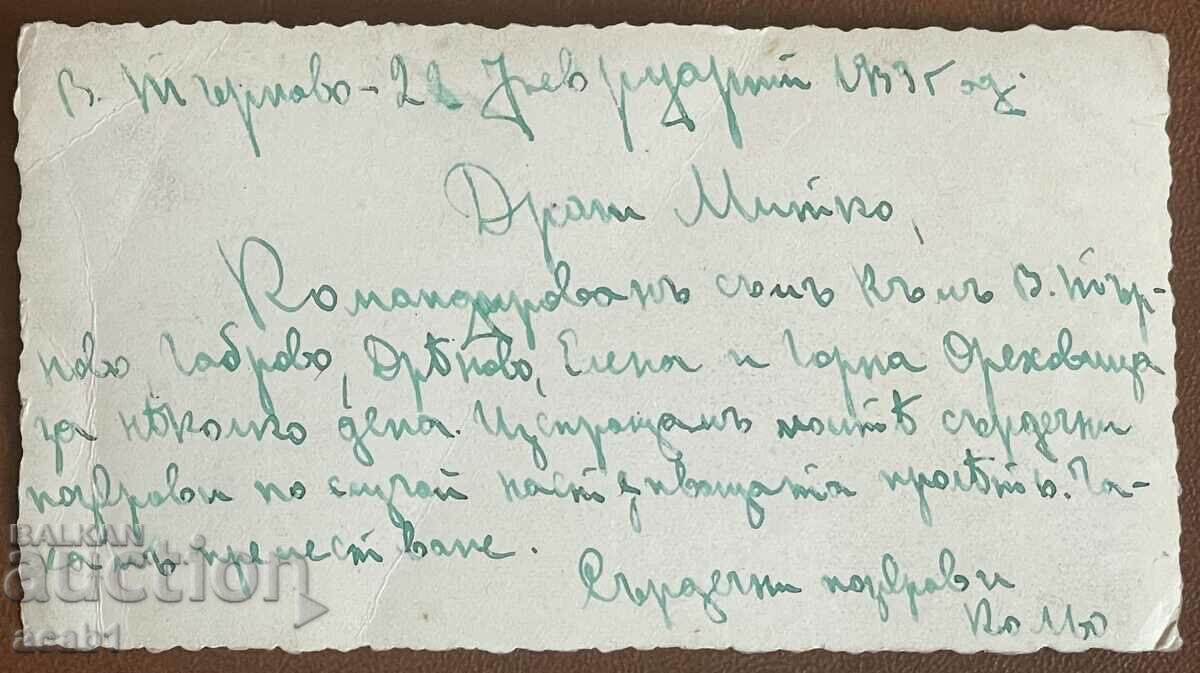 В. Търново - 22 Февруарий 1935 год.
Драги Митко,
Командированъ съмъ къмъ В. Тър-
ново, Габрово, Дрѣново, Елена и Горна Ореховица
за нѣколко дена. Изпращамъ моитѣ сърдечни
поздрави по случай настѫпващата пролѣть. Ча-
камъ преместване.
Сърдечни поздрави
BALKAN
auction
acab1